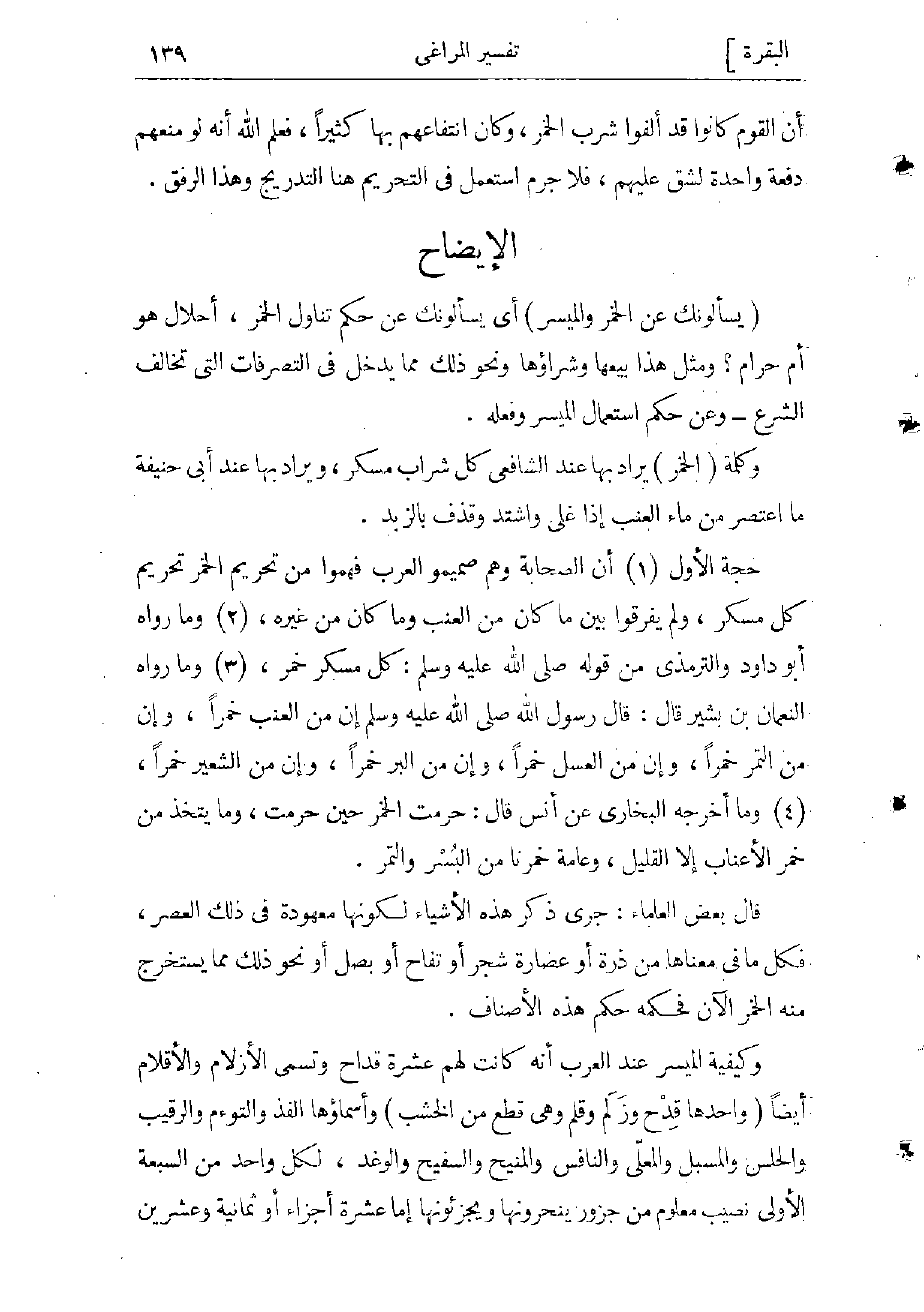 البقرة ] تفسير المراغى ١٣٩
أن القوم كانوا قد ألفوا شرب الخمر ، وكان انتفاعهم بها كثيراً ، فعلم الله أنه لو منعهم
دفعة واحدة لشق عليهم ، فلا جرم استعمل فى التحريم هنا التدريج وهذا الرفق .
الإيضاح
( يسألونك عن الخمر والميسر ) أى يسألونك عن حكم تناول الخمر ، أحلال هو
أم حرام ؟ ومثل هذا بيعها وشراؤها ونحو ذلك مما يدخل فى التصرفات التى تخالف
الشرع – وعن حكم استعمال الميسر وفعله .
وكلمة ( الخمر ) يراد بها عند الشافعى كل شراب مسكر ، ويراد بها عند أبى حنيفة
ما اعتصر من ماء العنب إذا غلى واشتد وقذف بالزبد .
حجة الأول (١) أن الصحابة وهم صميمو العرب فهموا من تحريم الخمر تحريم
كل مسكر ، ولم يفرقوا بين ما كان من العنب وما كان من غيره ، (٢) وما رواه
أبو داود والترمذى من قوله صلى الله عليه وسلم : كل مسكر خمر ، (٣) وما رواه
النعمان بن بشير قال : قال رسول الله صلى الله عليه وسلم إن من العنب خمراً ، وإن
من التمر خمراً ، وإن من العسل خمراً ، وإن من البر خمراً ، وإن من الشعير خمراً ،
(٤) وما أخرجه البخارى عن أنس قال : حرمت الخمر حين حرمت ، وما يتخذ من
خمر الأعناب إلا القليل ، وعامة خمرنا من البُسْر والتمر .
قال بعض العلماء : جرى ذكر هذه الأشياء لكونها معهودة فى ذلك العصر ،
فكل ما فى معناها من ذرة أو عضارة شجر أو تفاح أو بصل أو نحو ذلك مما يستخرج
منه الخمر الآن فحكمه حكم هذه الأصناف .
وكيفية الميسر عند العرب أنه كانت لهم عشرة قداح وتسمى الأزلام والأقلام
أيضاً ( واحدها قِدْح وزَلَم وقلم وهى قطع من الخشب ) وأسماؤها الفذ والتوءم والرقيب
والحلس والمسبل والمعلّى والنافس والمنيح والسفيح والوغد ، لكل واحد من السبعة
الأولى نصيب معلوم من جزور ينحرونها ويجزئونها إما عشرة أجزاء أو ثمانية وعشرين